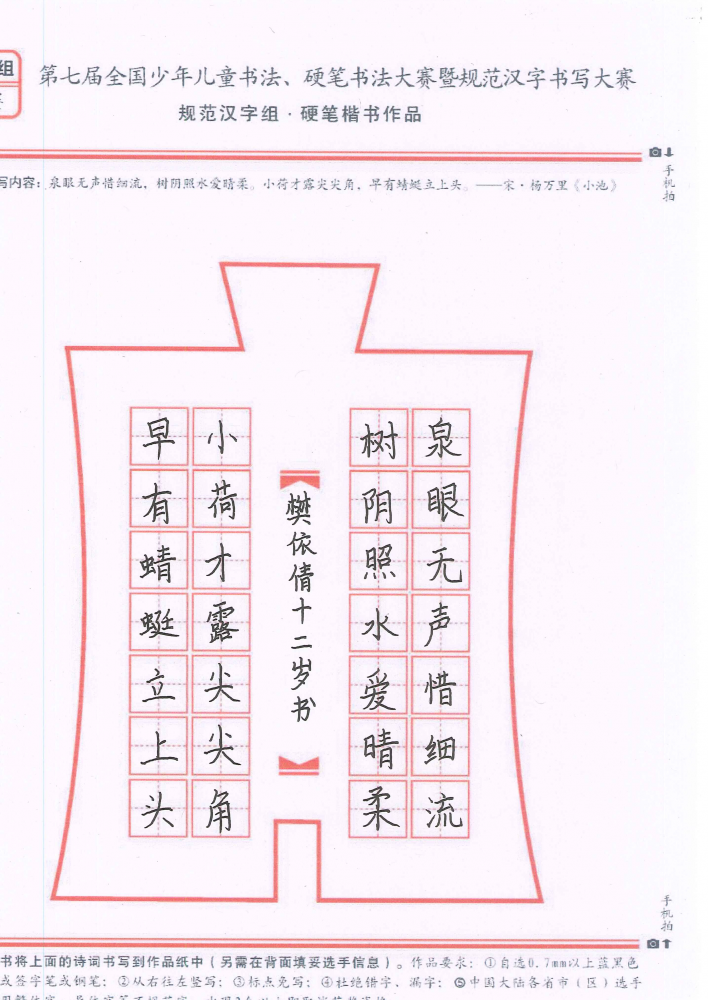 组
第七届全国少年儿童书法、硬笔书法大赛暨规范汉字书写大赛
规范汉字组·硬笔楷书作品
手机拍
写内容：泉眼无声惜细流，树阴照水爱晴柔。小荷才露尖尖角，早有蜻蜓立上头。——宋·杨万里《小池》
泉眼无声惜细流
树阴照水爱晴柔
樊依倩十二岁书
小荷才露尖尖角
早有蜻蜓立上头
手机拍
书将上面的诗词书写到作品纸中（另需在背面填妥选手信息）。作品要求：①自选0.7mm以上蓝黑色
或签字笔或钢笔；②从右往左竖写；③标点免写；④杜绝错字、漏字；⑤中国大陆各省市（区）选手